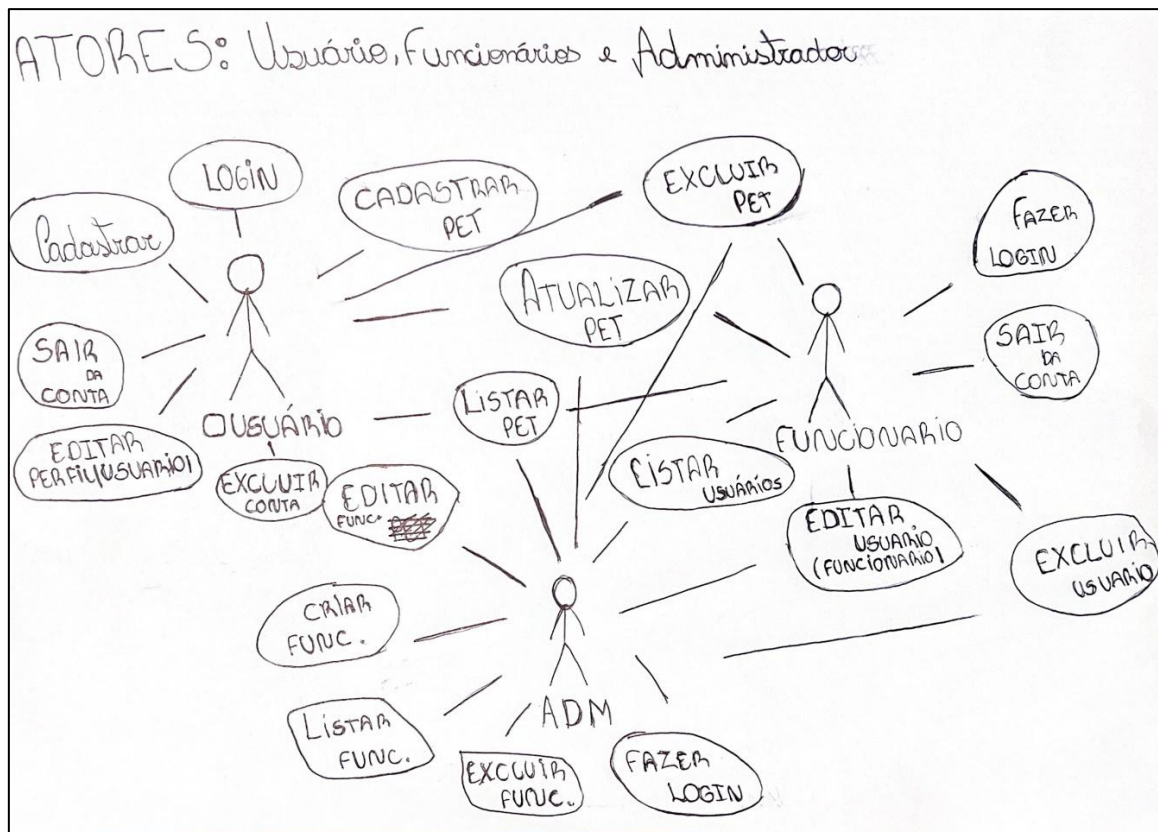 ATORES: Usuário, Funcionários e Administrador
LOGIN
CADASTRAR
PET
EXCLUIR
PET
FAZER
LOGIN
Cadastrar
ATUALIZAR
PET
SAIR
DA
CONTA
SAIR
DA
CONTA
LISTAR
PET
OUSUÁRIO
FUNCIONARIO
EDITAR
PERFIL(USUARIO)
EXCLUIR
CONTA
EDITAR
FUNC.
LISTAR
USUÁRIOS
EDITAR
USUARIO
(FUNCIONARIO)
EXCLUIR
USUARIO
CRIAR
FUNC.
ADM
LISTAR
FUNC.
EXCLUIR
FUNC.
FAZER
LOGIN